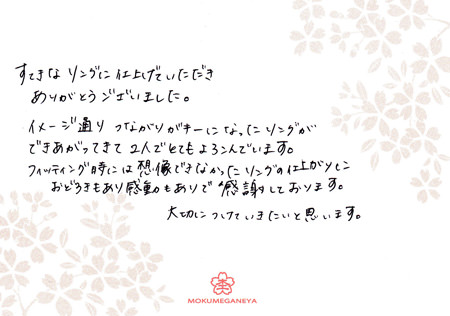 すてきなリングに仕上げていただき
ありがとうございました。
イメージ通り つながりがキーになったリングが
できあがってきて 2人でとてもよろこんでいます。
フィッティング時には想像できなかったリングの仕上がりに
おどろきもあり感動もありで感謝しております。
大切につけていきたいと思います。
MOKUMEGANEYA